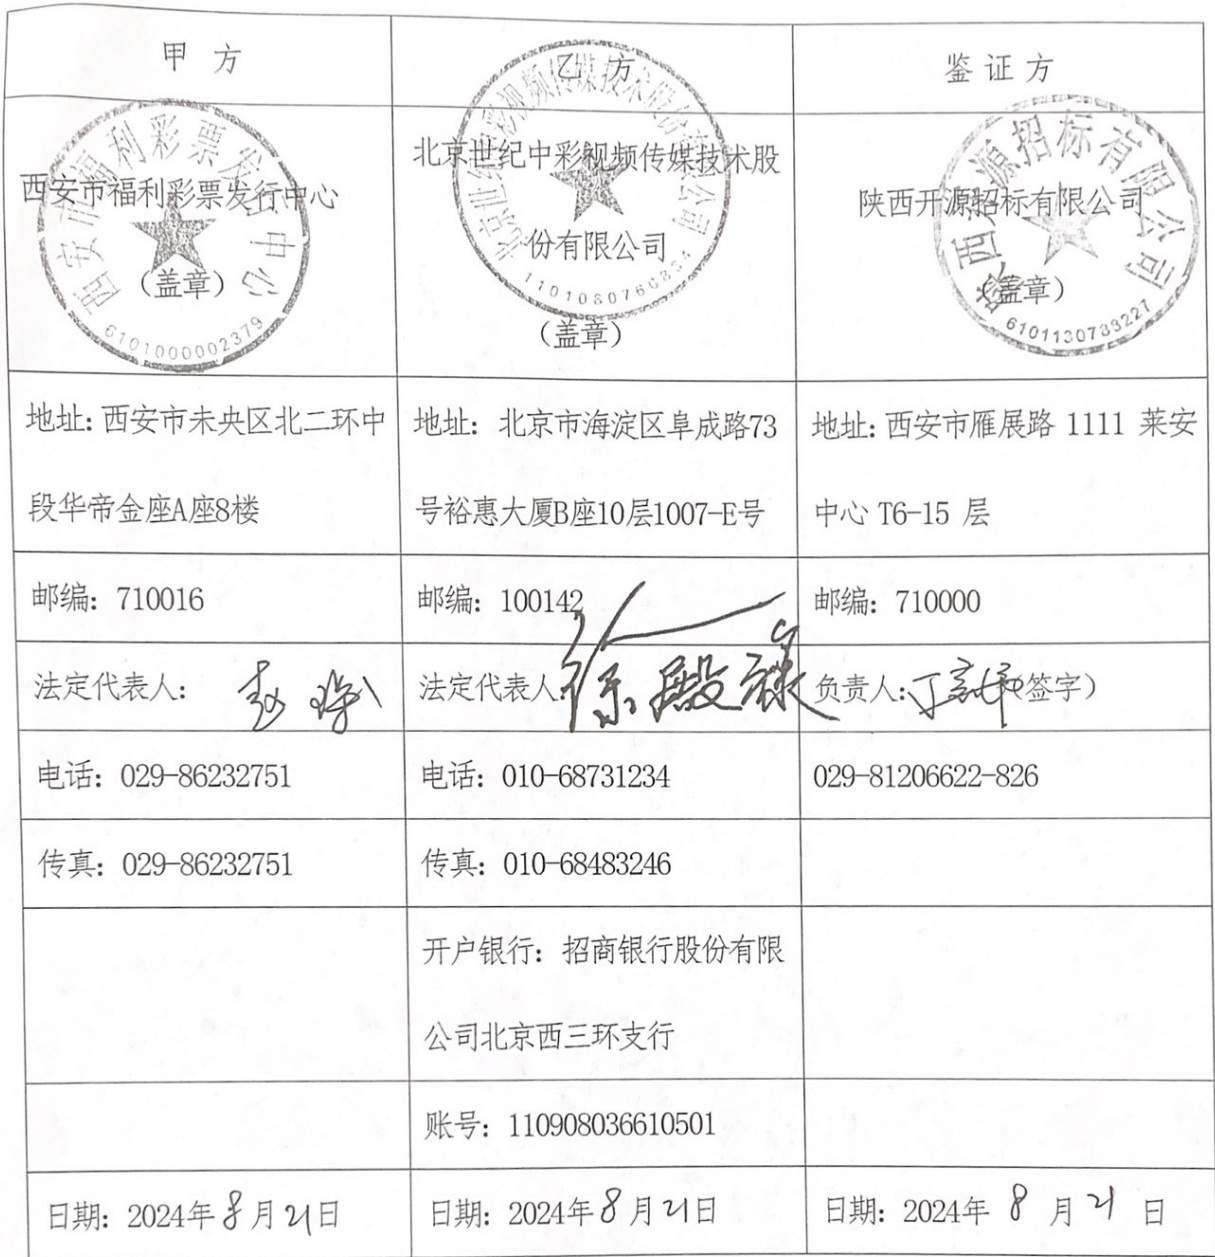 甲 方
乙 方
鉴 证 方
西安市福利彩票发行中心
(盖章)
6101000002379
北京世纪中彩视频传媒技术股
份有限公司
(盖章)
陕西开源招标有限公司
(盖章)
6101130783227
地址: 西安市未央区北二环中
段华帝金座A座8楼
地址: 北京市海淀区阜成路73
号裕惠大厦B座10层1007-E号
地址: 西安市雁展路 1111 莱安
中心 T6-15 层
邮编: 710016
邮编: 100142
邮编: 710000
法定代表人:
法定代表人 徐殿禄
负责人: (签字)
电话: 029-86232751
电话: 010-68731234
029-81206622-826
传真: 029-86232751
传真: 010-68483246
开户银行: 招商银行股份有限
公司北京西三环支行
账号: 110908036610501
日期: 2024年8月21日
日期: 2024年8月21日
日期: 2024年 8 月 21 日